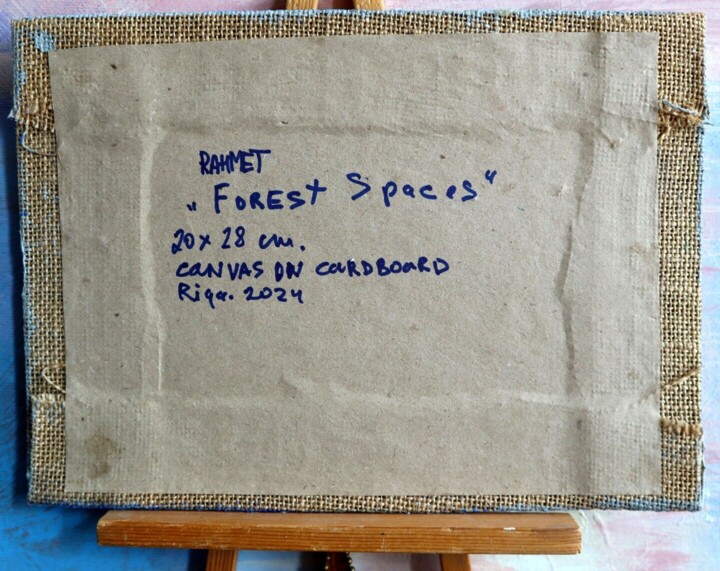 RAHMET
„Forest Spaces“
20 x 28 cm.
CANVAS ON CARDBOARD
Riga. 2024